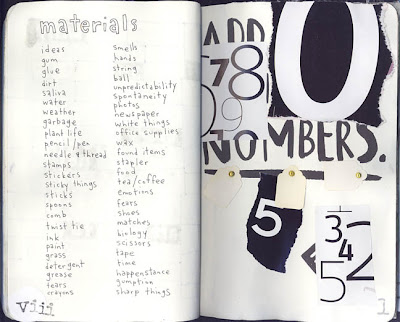 materials
ideas
gum
glue
dirt
saliva
water
weather
garbage
plant life
pencil/pen
needle & thread
stamps
stickers
sticky things
sticks
spoons
comb
twist tie
ink
paint
grass
detergent
grease
tears
crayons
smells
hands
string
ball
unpredictability
spontaneity
photos
newspaper
white things
office supplies
wax
found items
stapler
food
tea/coffee
emotions
fears
shoes
matches
biology
scissors
tape
time
happenstance
gumption
sharp things
viii
ADD
0
78
09
NUMBERS.
5
3
4
52
1